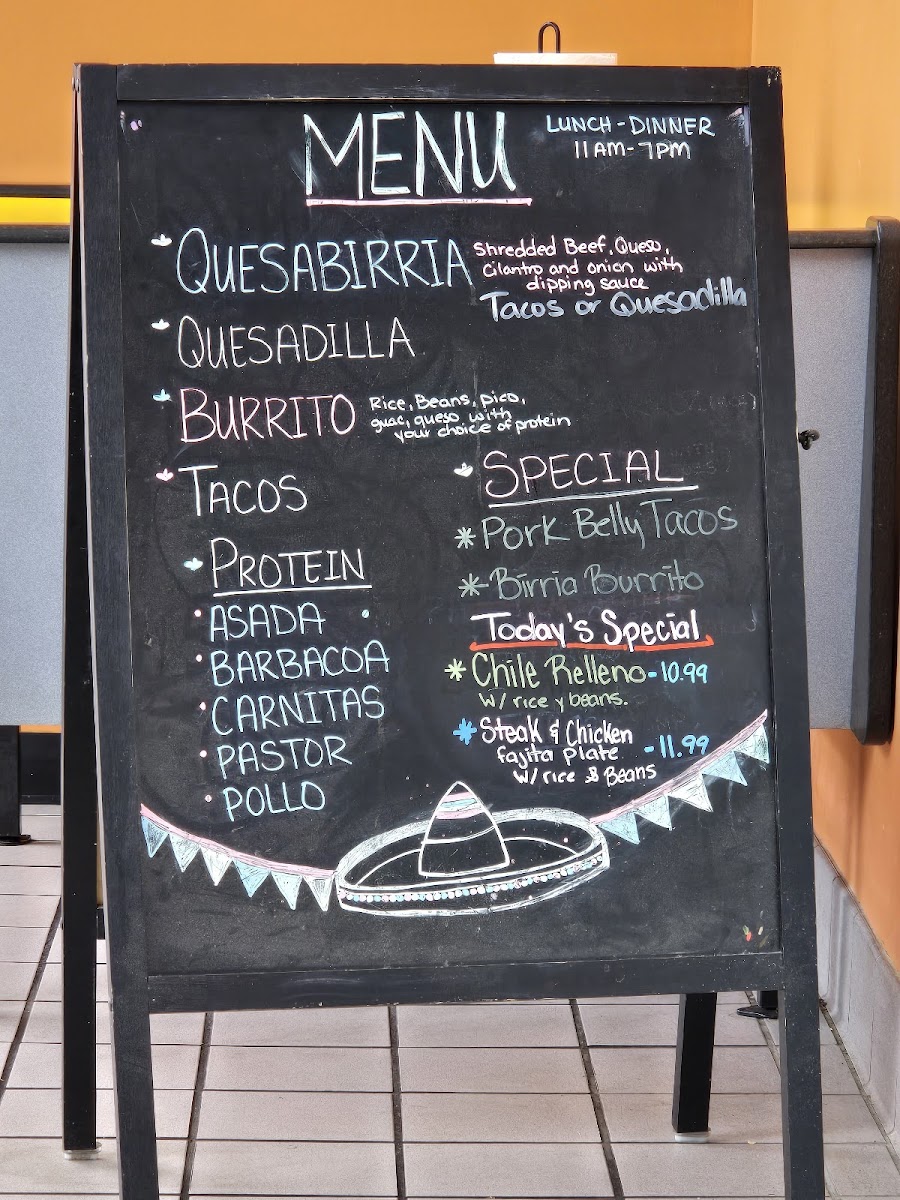 MENU
LUNCH - DINNER
11AM - 7PM
QUESABIRRIA
Shredded Beef, Queso,
Cilantro and onion with
dipping sauce
Tacos or Quesadilla
QUESADILLA
BURRITO
Rice, Beans, pico,
guac, queso with
your choice of protein
TACOS
PROTEIN
• ASADA •
• BARBACOA
• CARNITAS
• PASTOR
• POLLO
SPECIAL
* Pork Belly Tacos
* Birria Burrito
Today's Special
* Chile Relleno - 10.99
w/ rice y beans.
* Steak & Chicken
fajita plate - 11.99
w/ rice & Beans